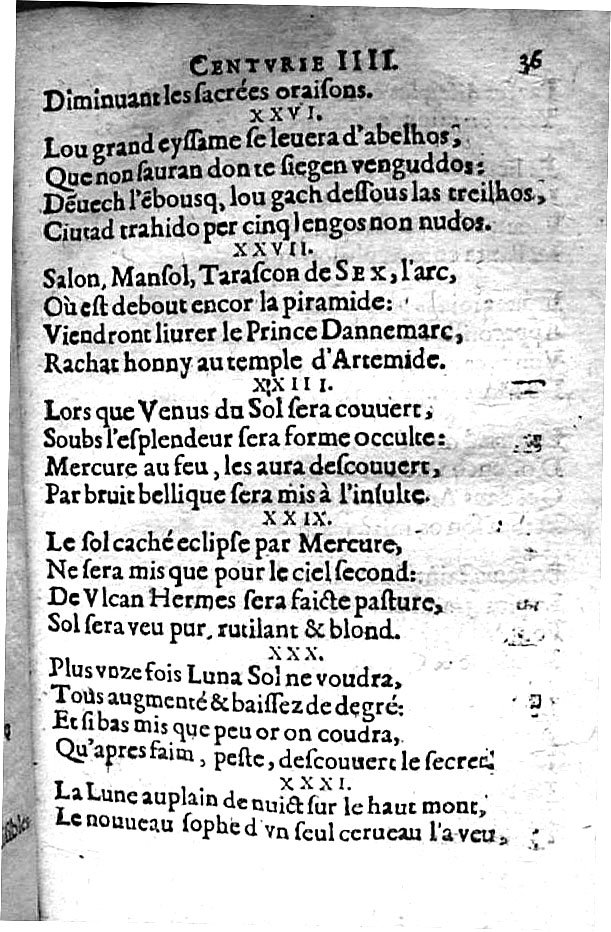 CENTVRIE IIII. 36
Diminuant les sacrées oraisons.
XXVI.
Lou grand eyſſame ſe leuera d'abelhos,
Que non ſauran don te ſiegen venguddos:
Dēuech l'ēbousq, lou gach deſſous las treilhos,
Ciutad trahido per cinq lengos non nudos.
XXVII.
Salon, Manſol, Taraſcon de SEX, l'arc,
Où eſt debout encor la piramide:
Viendront liurer le Prince Dannemarc,
Rachat honny au temple d'Artemide.
XXIII.
Lors que Venus du Sol ſera couuert,
Soubs l'eſplendeur ſera forme occulte:
Mercure au feu, les aura deſcouuert,
Par bruit bellique ſera mis à l'inſulte.
XXIX.
Le ſol caché eclipſe par Mercure,
Ne ſera mis que pour le ciel ſecond:
De Vlcan Hermes ſera faicte paſture,
Sol ſera veu pur, rutilant & blond.
XXX.
Plus vnze fois Luna Sol ne voudra,
Tous augmenté & baiſſez de degré:
Et ſi bas mis que peu or on coudra,
Qu'apres faim, peſte, deſcouuert le ſecret.
XXXI.
La Lune au plain de nuict ſur le haut mont,
Le nouueau ſophe d'vn ſeul cerueau l'a veu,